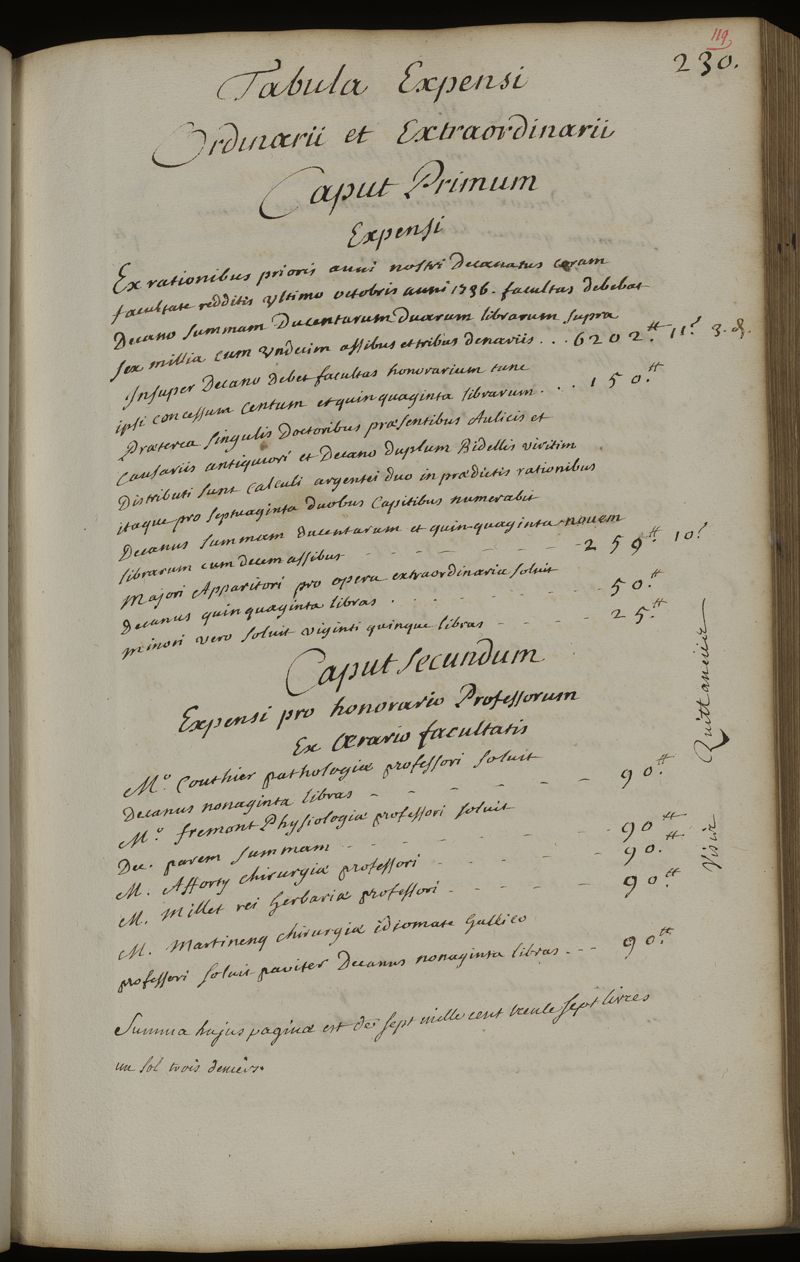 119
230.
Tabula Expensi
Ordinarii et Extraordinarii
Caput Primum
Expensi
Ex rationibus prioris anni nostri Decanatus coram
facultate redditis Ultimo octobris anni 1736. facultas debebat
Decano summam Ducentarum Duarum librarum supra
sex millia cum Undecim assibus et tribus denariis . . . 6202.tt 11.s 3.d.
Insuper Decano debet facultas honorarium tunc
ipsi concessum Centum et quinquaginta librarum . . . 150.tt
Præterea singulis Doctoribus præsentibus Aulicis et
Causariis antiquiori et Decano duplum Bidellis viritim
Distributi sunt Calculi argentei duo in prædictis rationibus
itaque pro septuaginta duobus Capitibus numerabit
Decanus summam ducentarum et quinquaginta novem
librarum cum decem assibus - - - - - - 259.tt 10.s
Majori Apparitori pro opera extraordinaria soluit
Decanus quinquaginta libras . - - - - - 50.tt
minori vero soluit viginti quinque libras - - - - 25.tt
Caput Secundum
Expensi pro honorario Professorum
Ex Ærario facultatis
M.o Couthier pathologiæ professori soluit
Decanus nonaginta libras - - - - - - 90.tt
M.o fremont Physiologiæ professori soluit
Dec. parem summam - - - - - - 90tt
M. Afforty chirurgiæ professori - - - - - 90.tt
M. Millet rei herbariæ professori - - - - - 90.tt
M. Martinenq chirurgiæ idiomate Gallico
professori soluit pariter Decanus nonaginta libras - - - 90.tt
Summa hujus paginæ est de sept mille cent trente sept livres
un sol trois deniers.
Visæ Quittanciæ